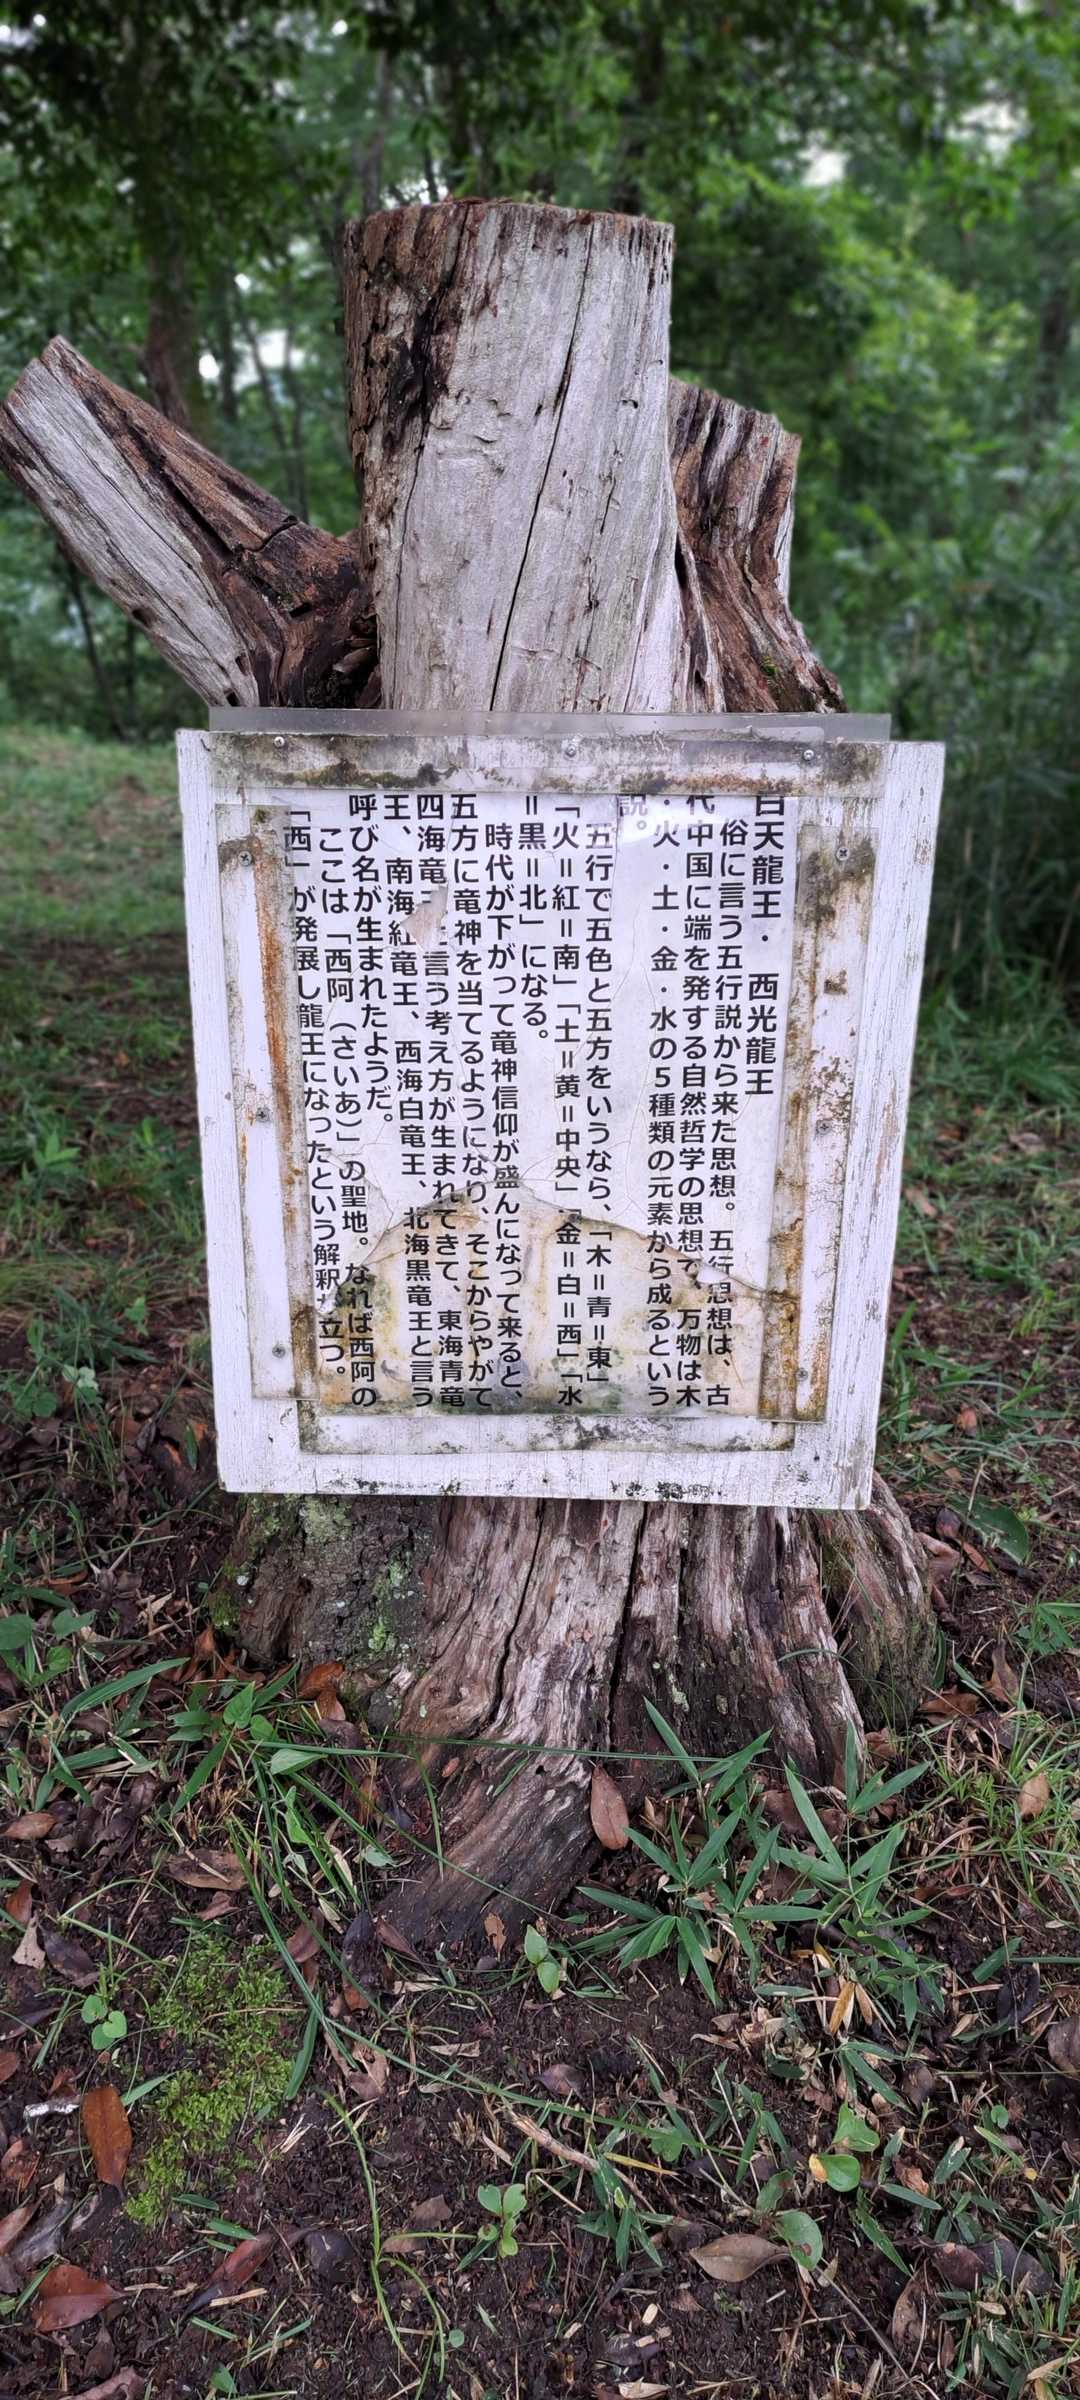 白天龍王・ 西光龍王
俗に言う五行説から来た思想。五行思想は、古
代中国に端を発する自然哲学の思想で、万物は木
・火・土・金・水の5種類の元素から成るという
説。
五行で五色と五方をいうなら、「木=青=東」
「火=紅=南」「土=黄=中央」「金=白=西」「水
=黒=北」になる。
時代が下がって竜神信仰が盛んになって来ると、
五方に竜神を当てるようになり、そこからやがて
四海竜王と言う考え方が生まれてきて、東海青竜
王、南海紅竜王、西海白竜王、北海黒竜王と言う
呼び名が生まれたようだ。
ここは「西阿(さいあ)」の聖地。なれば西阿の
「西」が発展し龍王になったという解釈 立つ。